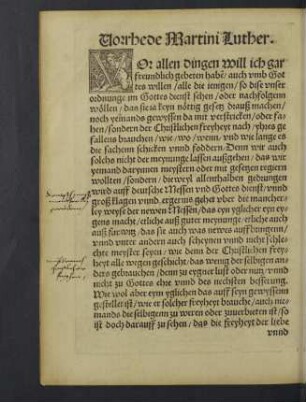 Vorrhede Martini Luther.
VOr allen dingen will ich gar
freundlich gebeten habē / auch vmb Got
tes willen / alle die ienigen / so dise vnser
ordnunge im Gottes dienst sehen / oder nachfolgenn
wöllen / das sie ia keyn nötig gesetz drauß machen /
noch yemands gewyssen da mit verstricken / oder fa-
hen / sondern der Christlichen freyheyt nach / yhres ge
fallens brauchen / wie / wo / wenn / vnd wie lange es
die sachenn schicken vnnd foddern. Denn wir auch
solchs nicht der meynunge lassen außgehen / das wir
yemand darynnn meystern oder mit gesetzen regiern
wollten / sondern / die weyl allenthalben gedrungen
wird auff deutsche Messen vnd Gottes dienst / vnnd
groß klagen vnnd ergernis gehet vber die mancher-
ley weyse der newen Messen / das eyn yglicher eyn ey-
gens machet / etliche auß guter meynunge / etliche auch
auß fürwitz / das sie auch was newes auffbringenn /
vnnd vnter andern auch scheynen vnnd nicht schlech-
te meyster seyen / wie denn der Christlichen frey-
heyt alle wegen geschicht / das wenig der selbigen an-
ders gebrauchen / denn zu eygner lust oder nutz / vnnd
nicht zu Gottes ehre vnnd des nechsten besserung.
Wie wol aber eym yglichen das auff seyn gewyssenn
gestellet ist / wie er solcher freyheyt brauche / auch nie-
mands die selbigenn zu weren oder zuuerbieten ist / so
ist doch darauff zu sehen / das die freyheyt der liebe
vnnd